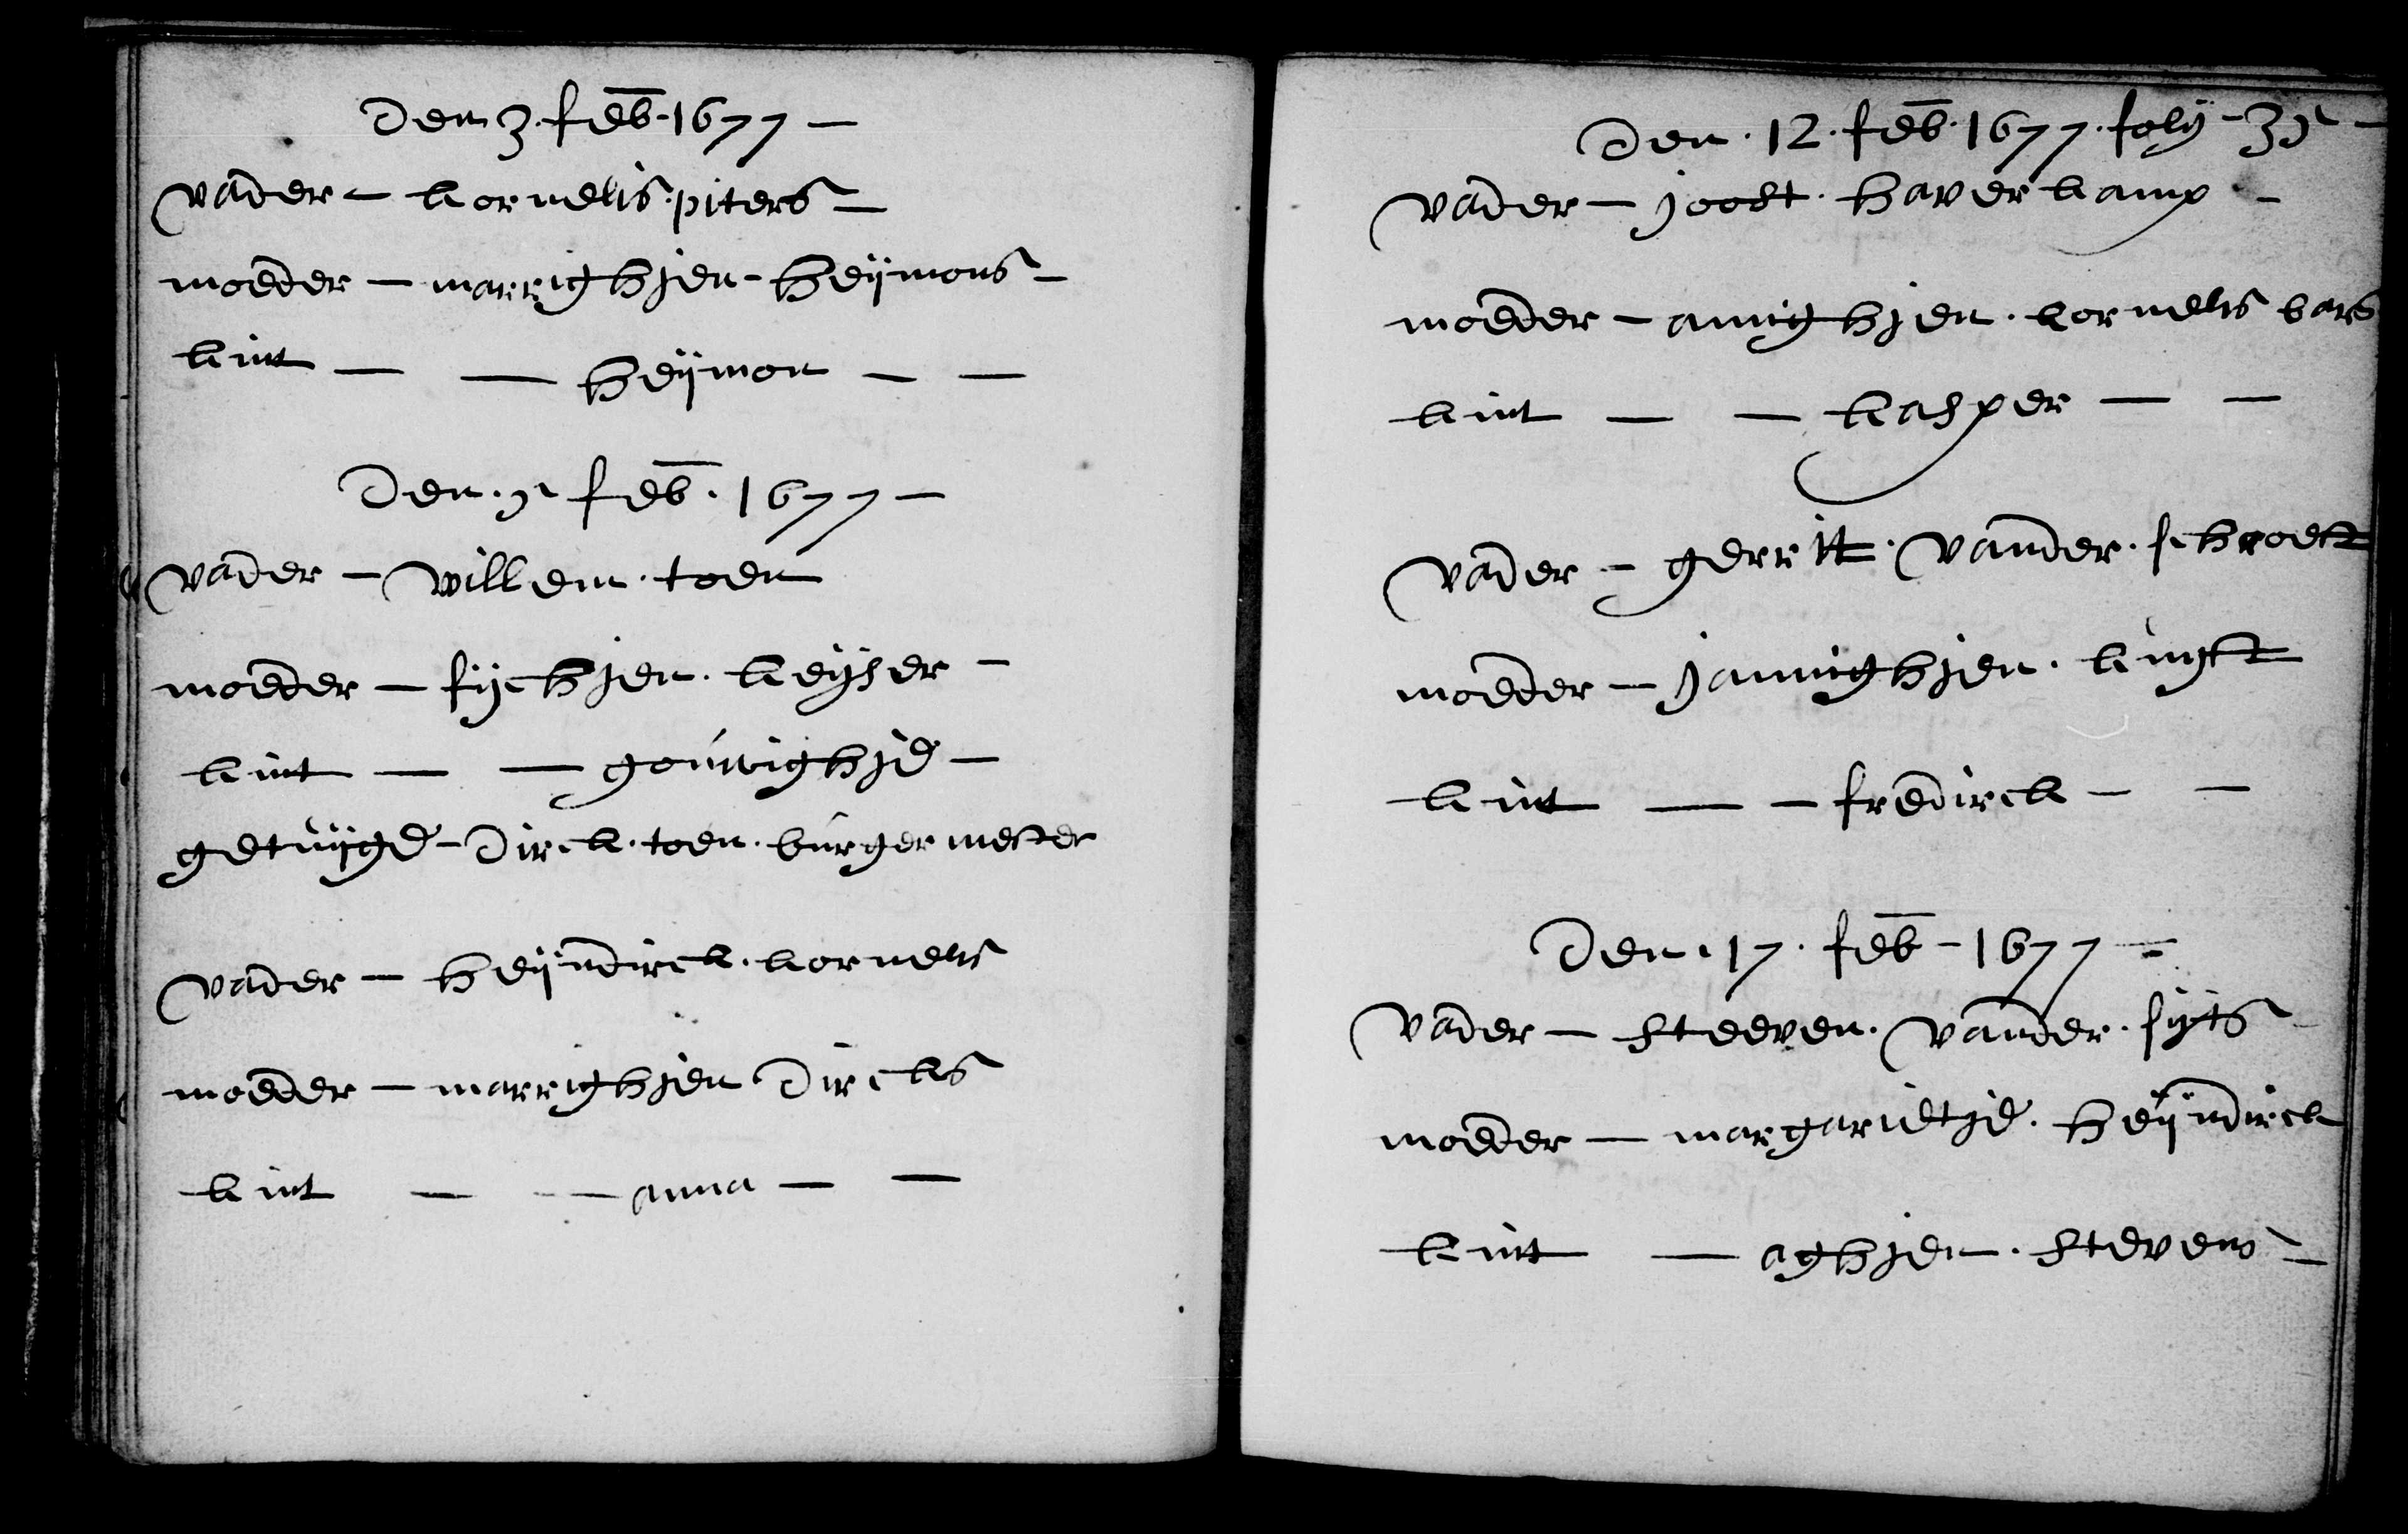 Den 3. feb. 1677 —
vader — kornelis. piters —
moeder — marrighjen - heijmons —
kint — — heijmon — —
Den. 9 feb. 1677 —
vader — willem. toen
moeder — fijchjen. keijser —
kint — — gouwighje —
getuijge - Dirck. toen. burgermester
vader — heijndirck. kornelis
moeder — marrighjen Dircks
kint — — anna — —
Den. 12. feb. 1677. foly - 39 —
vader — joost. haverkamp —
moeder — annighjen. kornelis bars
kint — — kasper — —
vader — gerritt. vander.
moeder — jannighjen.
kint — — fredirck — —
Den. 17. feb - 1677 —
vader — steeven. vander.
moeder — margarietje. heijndirck
kint — aghjen. stevens —